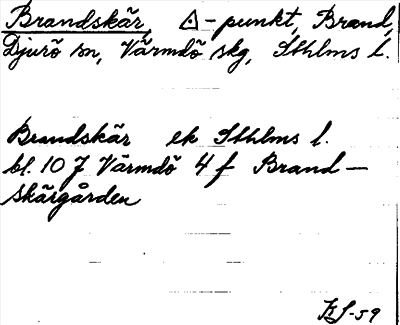 Brandskär, △-punkt, Brand,
Djurö sn, Värmdö skg, Sthlms l.
Brandskär ek Sthlms l.
bl. 10 J Värmdö 4 f Brand–
skärgården
KS-59